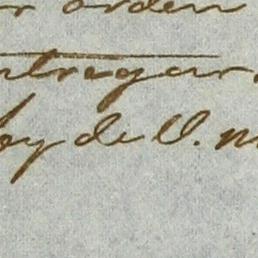 r orden
ntregar.
by de V. m